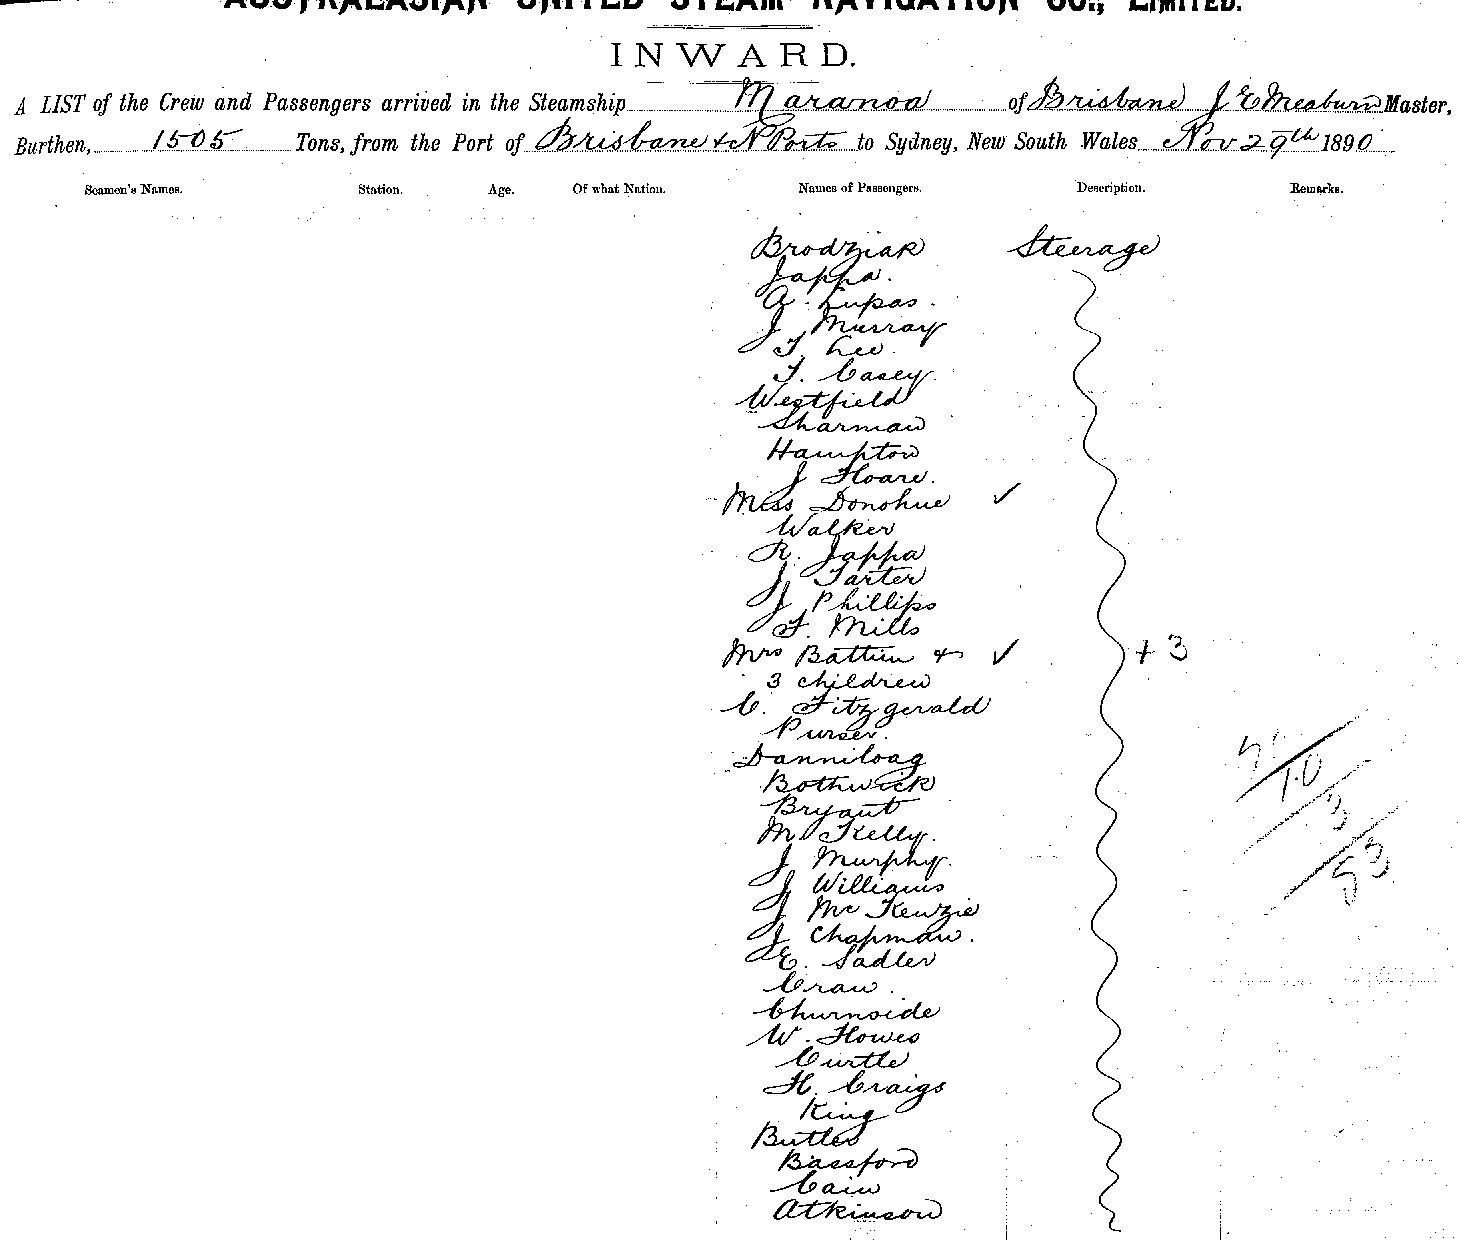 AUSTRALASIAN UNITED STEAM NAVIGATION CO., LIMITED.
INWARD.
A LIST of the Crew and Passengers arrived in the Steamship Maranoa of Brisbane J E Meaburn Master,
Burthen, 1505 Tons, from the Port of Brisbane & N Ports to Sydney, New South Wales Nov 29th 1890
Seamen's Names. Station. Age. Of what Nation. Names of Passengers. Description. Remarks.
Brodziak Steerage
Jappa.
A. Lupas.
J Murray
T. Lee
T. Casey.
Westfield
Sharman
Hampton
J Hoare.
Miss Donohue ✓
Walker
R. Jappa
J Tarter
J Phillips
F. Mills
Mrs Batten & ✓ + 3
3 children
C. Fitzgerald
Purser.
Danniloag
Bothwick
Bryant
M Kelly.
J Murphy.
J Williams
J McKenzie
J Chapman.
E. Sadler
Craw.
Churnside
W. Howes
Curtle
H. Craigs
King
Butler
Bassford
Cain
Atkinson
10
3
53